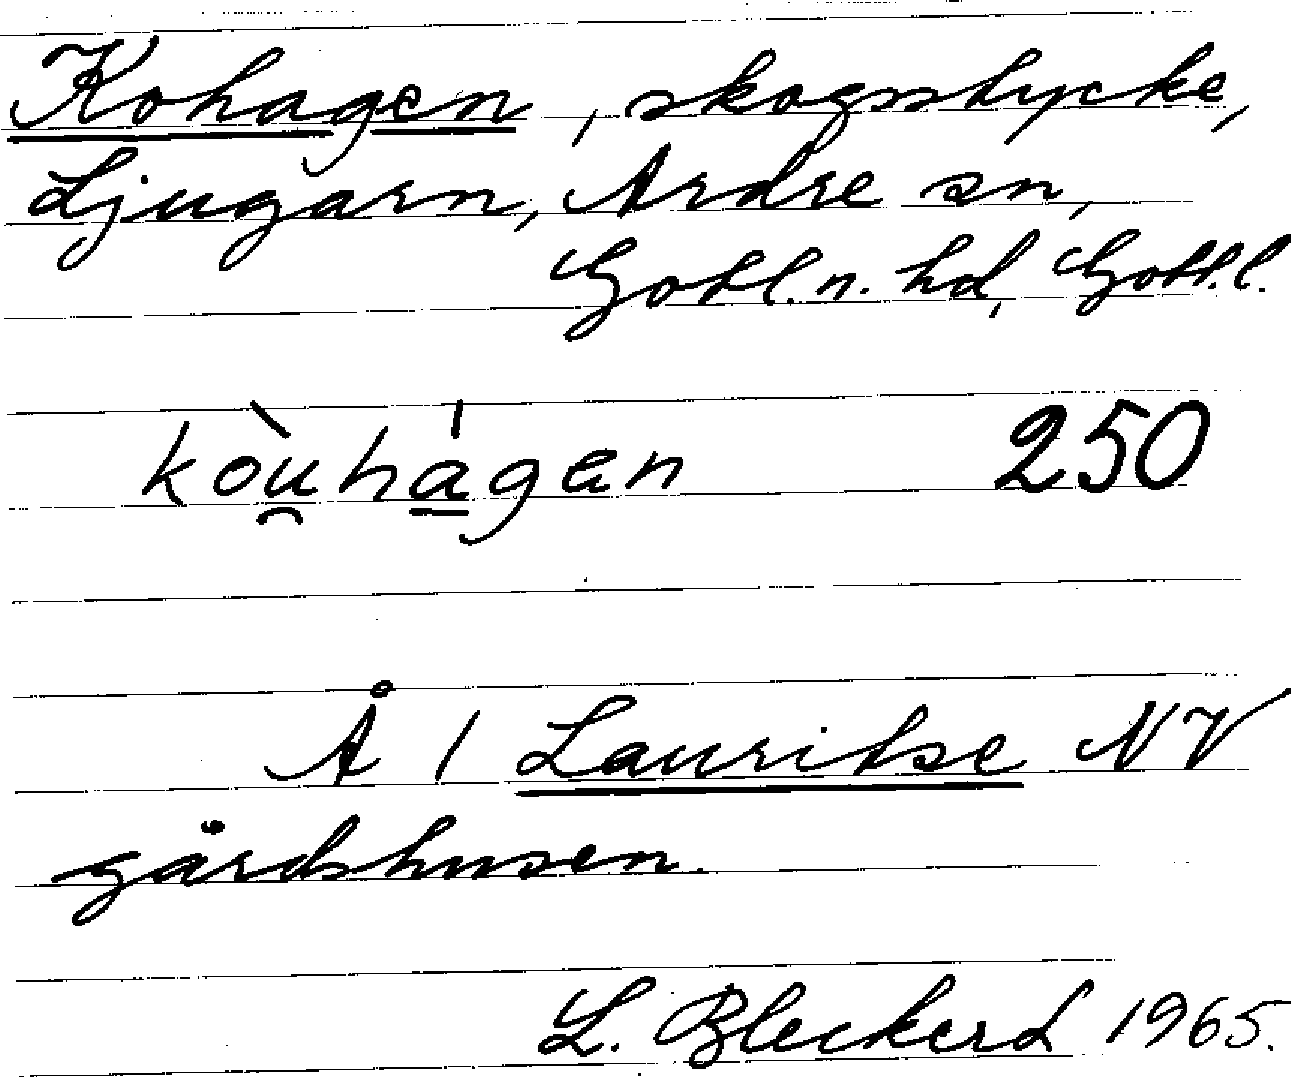 Kohagen, skogsstycke,
Ljugarn, Ardre sn,
Gotl. n. hd, Gottl.
kòu̯há̱gæn 250
Å 1 Lauritse NV
gårdshusen.
L. Bleckert 1965.